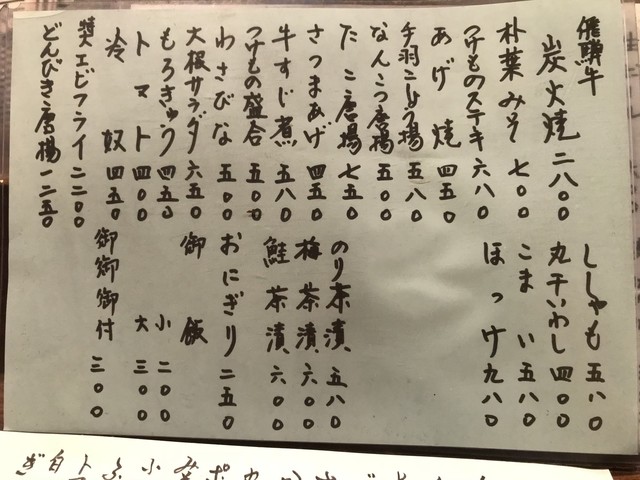 飛騨牛
炭火焼 二八〇〇
朴葉みそ 七〇〇
つけものステーキ 六八〇
あげ焼 四五〇
手羽こしょう揚 五八〇
なんこつ唐揚 五〇〇
たこ唐揚 七五〇
さつまあげ 四五〇
牛すじ煮 五八〇
つけもの盛合 五〇〇
わさびな 五〇〇
大根サラダ 六五〇
もろきゅう 四五〇
トマト 四〇〇
冷奴 四五〇
特大エビフライ 二二〇〇
どんびき唐揚 一二五〇
ししゃも 五八〇
丸干いわし 四〇〇
こまい 五八〇
ほっけ 九八〇
のり茶漬 五八〇
梅茶漬 六〇〇
鮭茶漬 六〇〇
おにぎり 二五〇
御飯
小 二〇〇
大 三〇〇
御御御付 三〇〇